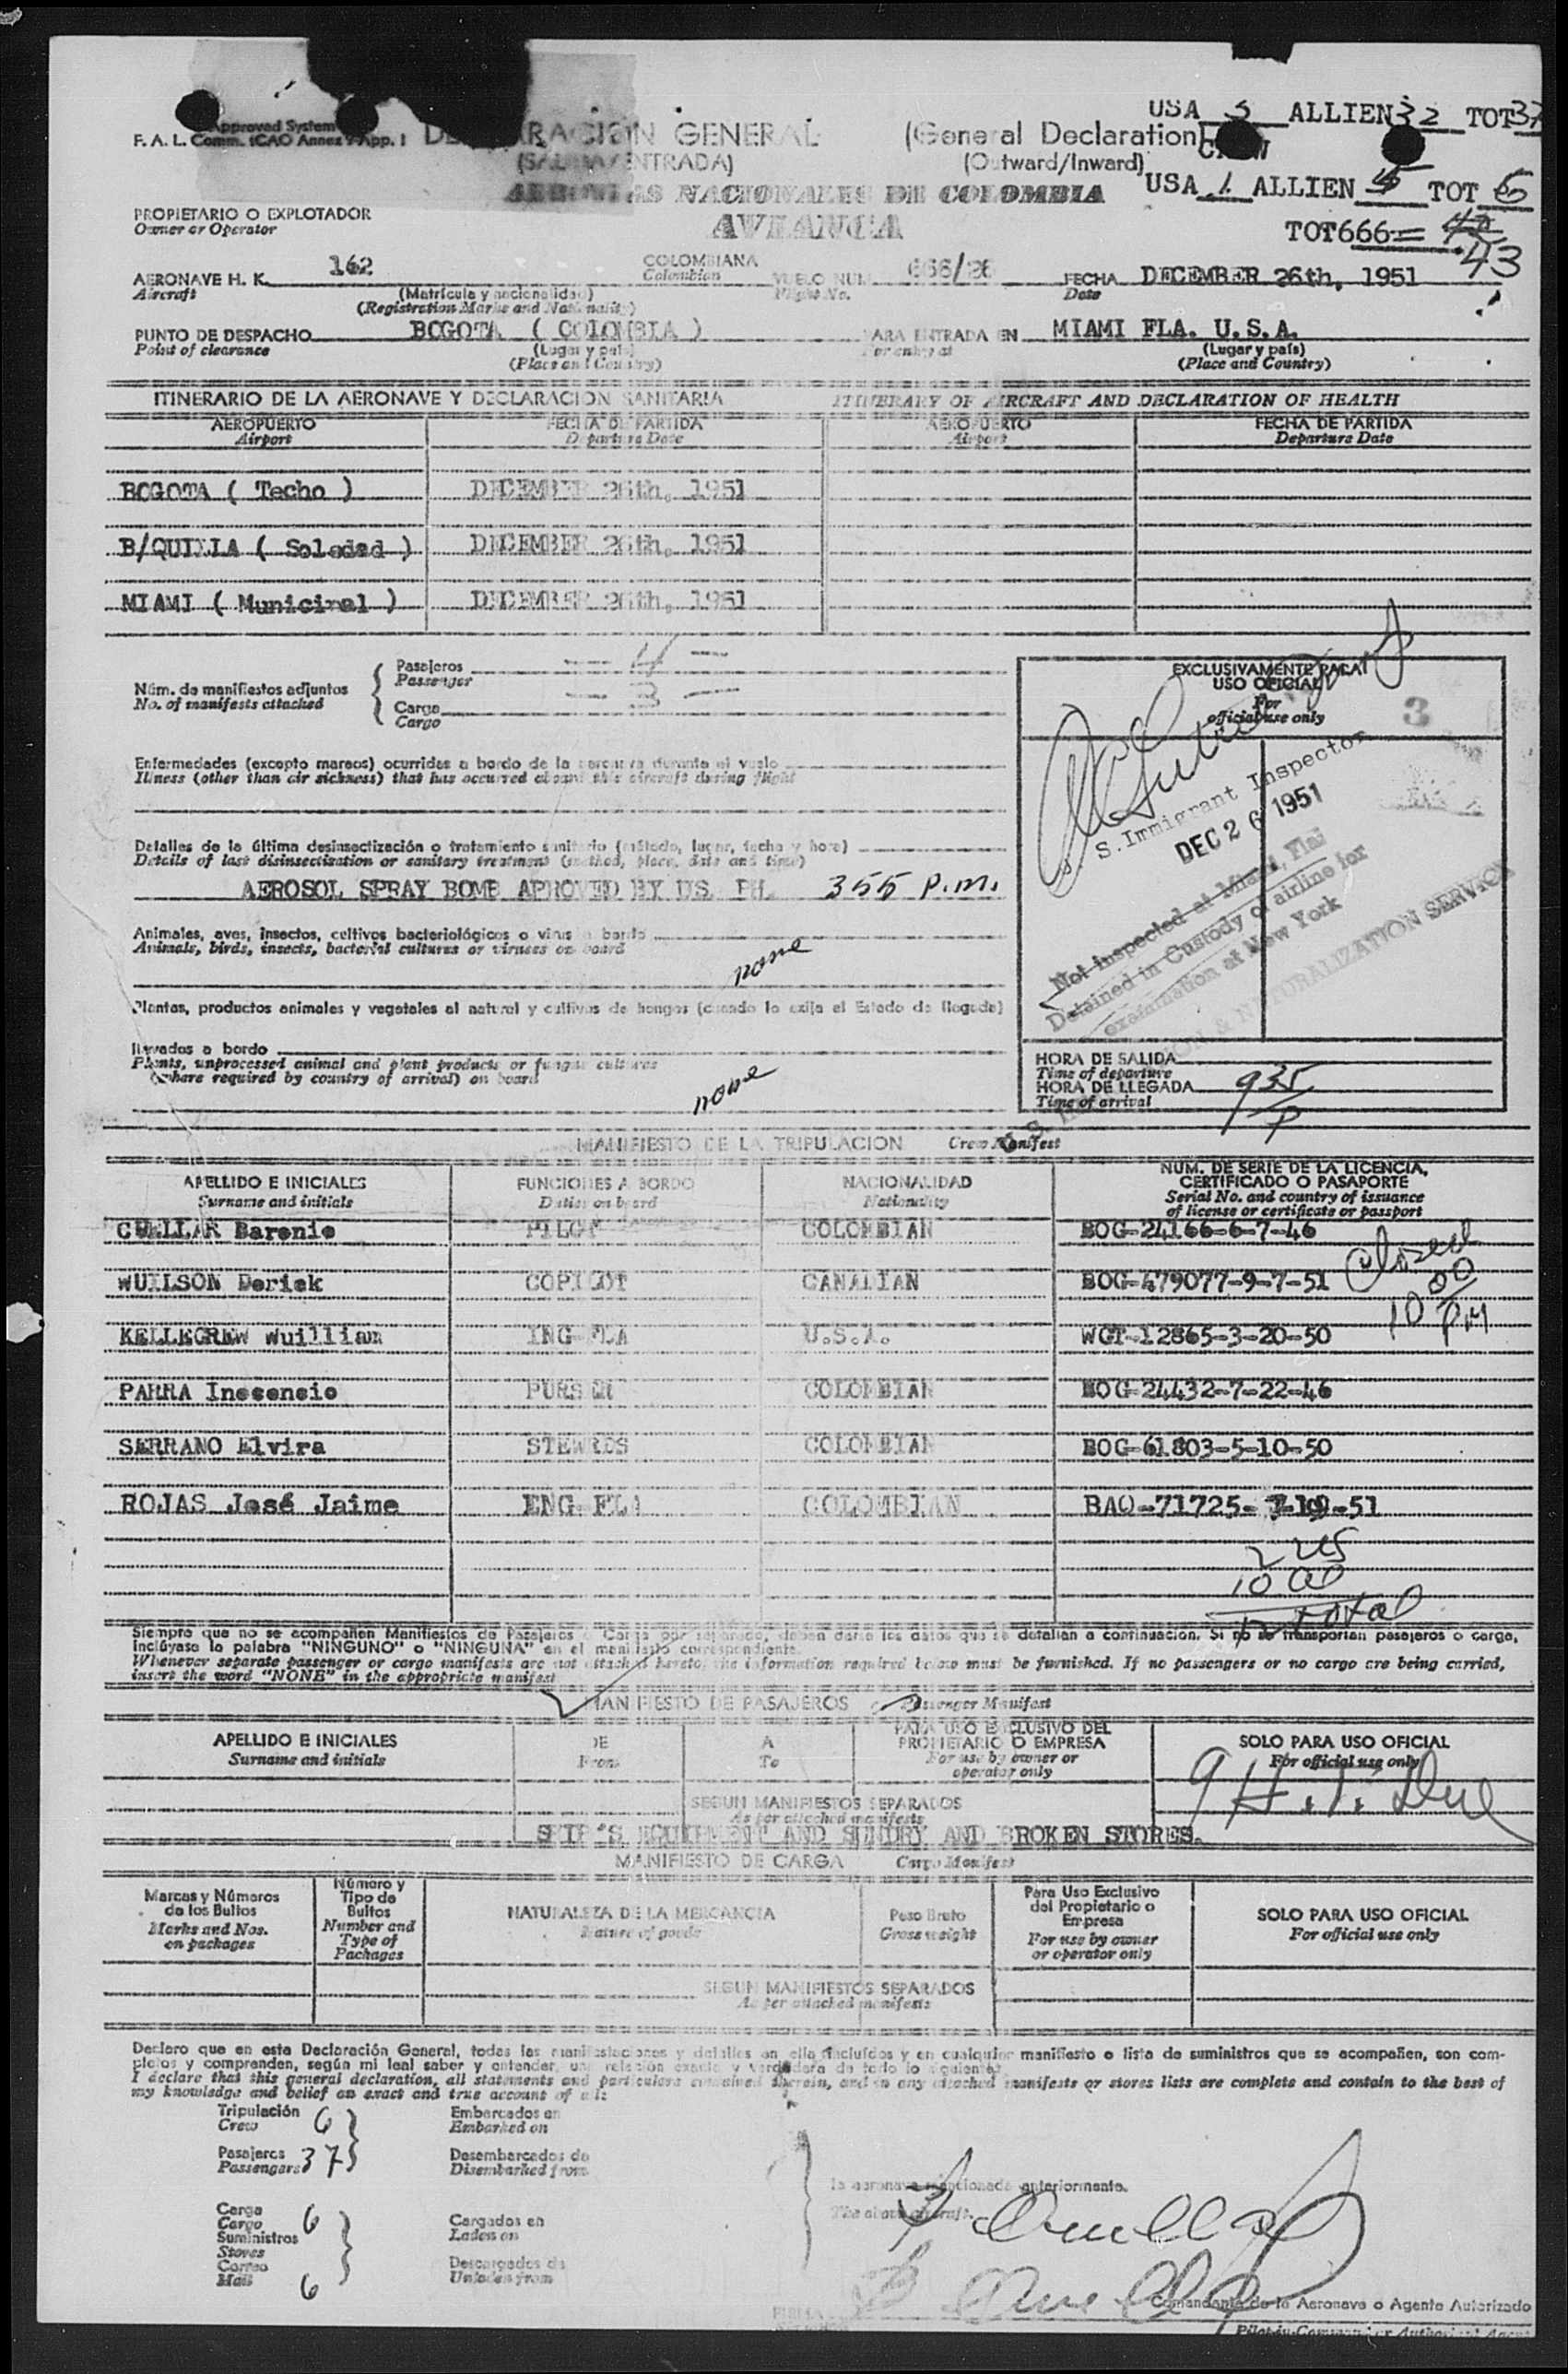 USA 5 ALLIEN 32 TOT 37
Approved System
F. A. L. Comm. (ICAO Annex 9-App. I
DECLARACION GENERAL (General Declaration)
(SALIDA/ENTRADA) (Outward/Inward)
CREW
USA 1 ALLIEN 5 TOT 6
AEROVIAS NACIONALES DE COLOMBIA
AVIANCA
TOT666= 42
43
PROPIETARIO O EXPLOTADOR
Owner or Operator
AERONAVE H. K. 162 COLOMBIANA VUELO NUM. 666/26 FECHA DECEMBER 26th, 1951
Aircraft Colombian Flight No. Date
(Matrícula y nacionalidad)
(Registration Marks and Nationality)
PUNTO DE DESPACHO BOGOTA ( COLOMBIA ) PARA ENTRADA EN MIAMI FLA. U.S.A.
Point of clearance (Lugar y país) For entry at (Lugar y país)
(Place and Country) (Place and Country)
ITINERARIO DE LA AERONAVE Y DECLARACION SANITARIA ITINERARY OF AIRCRAFT AND DECLARATION OF HEALTH
AEROPUERTO FECHA DE PARTIDA AEROPUERTO FECHA DE PARTIDA
Airport Departure Date Airport Departure Date
BOGOTA ( Techo ) DECEMBER 26th, 1951
B/QUILLA ( Soledad ) DECEMBER 26th, 1951
MIAMI ( Municipal ) DECEMBER 26th, 1951
Núm. de manifiestos adjuntos
No. of manifests attached
Pasajeros — 4 —
Passenger
Carga — 3 —
Cargo
EXCLUSIVAMENTE PARA
USO OFICIAL
For
official use only
3
S. Immigrant Inspector
DEC 26 1951
Not inspected at Miami, Fla
Detained in Custody of airline for
examination at New York
& NATURALIZATION SERVICE
Enfermedades (excepto mareos) ocurridas a bordo de la aeronave durante el vuelo
Illness (other than air sickness) that has occurred aboard this aircraft during flight
Detalles de la última desinsectización o tratamiento sanitario (método, lugar, fecha y hora)
Details of last disinsectization or sanitary treatment (method, place, date and time)
AEROSOL SPRAY BOMB APROVED BY US. PH. 355 P.M.
Animales, aves, insectos, cultivos bacteriológicos o virus a bordo
Animals, birds, insects, bacterial cultures or viruses on board
none
Plantas, productos animales y vegetales al natural y cultivos de hongos (cuando lo exija el Estado de llegada)
llevados a bordo
Plants, unprocessed animal and plant products or fungus cultures
(where required by country of arrival) on board
none
HORA DE SALIDA
Time of departure
HORA DE LLEGADA 935 P
Time of arrival
MANIFIESTO DE LA TRIPULACION Crew Manifest
APELLIDO E INICIALES FUNCIONES A BORDO NACIONALIDAD NUM. DE SERIE DE LA LICENCIA, CERTIFICADO O PASAPORTE
Surname and initials Duties on board Nationality Serial No. and country of issuance of license or certificate or passport
CUELLAR Barenio PILOT COLOMBIAN BOG-24166-6-7-46
WUILSON Derick COPILOT CANADIAN BOG-479077-9-7-51
KELLEGREW Wuilliam ING FLA U.S.A. WGT-12865-3-20-50
PARRA Inocencio PURSER COLOMBIAN BOG-24432-7-22-46
SERRANO Elvira STEWRDS COLOMBIAN BOG-61803-5-10-50
ROJAS José Jaime ENG FLA COLOMBIAN BAQ-71725-
closed
10 00 PM
total
Siempre que no se acompañen Manifiestos de Pasajeros o Carga por separado, deben darse los datos que se detallan a continuación. Si no se transportan pasajeros o carga,
inclúyase la palabra "NINGUNO" o "NINGUNA" en el manifiesto correspondiente.
Whenever separate passenger or cargo manifests are not attached hereto, the information required below must be furnished. If no passengers or no cargo are being carried,
insert the word "NONE" in the appropriate manifest
MANIFIESTO DE PASAJEROS Passenger Manifest
APELLIDO E INICIALES DE A PARA USO EXCLUSIVO DEL PROPIETARIO O EMPRESA SOLO PARA USO OFICIAL
Surname and initials From To For use by owner or operator only For official use only
SEGUN MANIFIESTOS SEPARADOS
As per attached manifests
SHIP'S EQUIPMENT AND SUNDRY AND BROKEN STORES.
MANIFIESTO DE CARGA Cargo Manifest
Marcas y Números de los Bultos Número y Tipo de Bultos NATURALEZA DE LA MERCANCIA Peso Bruto Para Uso Exclusivo del Propietario o Empresa SOLO PARA USO OFICIAL
Marks and Nos. on packages Number and Type of Packages Nature of goods Gross weight For use by owner or operator only For official use only
SEGUN MANIFIESTOS SEPARADOS
As per attached manifests
Declaro que en esta Declaración General, todas las manifestaciones y detalles en ella incluídos y en cualquier manifiesto o lista de suministros que se acompañen, son com-
pletos y comprenden, según mi leal saber y entender, una relación exacta y verdadera de todo lo siguiente:
I declare that this general declaration, all statements and particulars contained therein, and in any attached manifests or stores lists are complete and contain to the best of
my knowledge and belief an exact and true account of all:
Tripulación 6 Embarcados en
Crew Embarked on
Pasajeros 37 Desembarcados de
Passengers Disembarked from
la aeronave mencionada anteriormente.
The above aircraft.
Carga 6 Cargados en
Cargo Laden on
Suministros
Stores
Correo Descargados de
Mail 6 Unladen from
FIRMA
Comandante de la Aeronave o Agente Autorizado
Pilot-in-Command or Authorized Agent